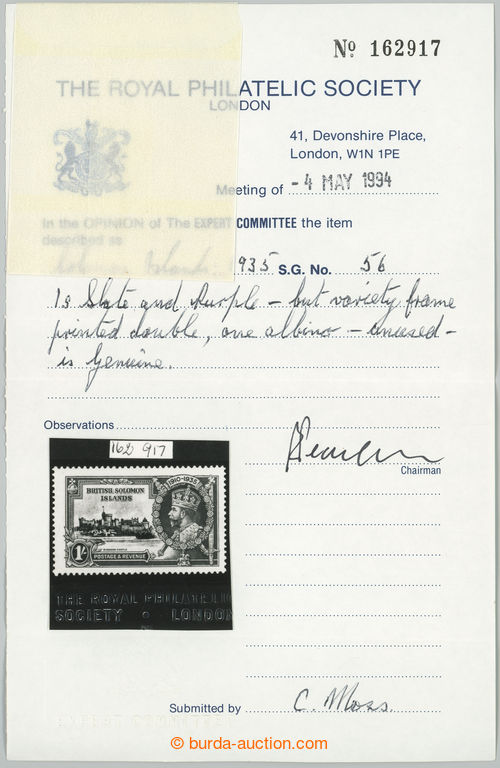 Nº 162917
THE ROYAL PHILATELIC SOCIETY
LONDON
41, Devonshire Place,
London, W1N 1PE
Meeting of - 4 MAY 1994
In the OPINION of The EXPERT COMMITTEE the item
described as
Solomon Islands: 1935 S.G. No. 56
1s Slate and Purple - but variety frame
printed double, one albino - unused -
is genuine.
Observations
Chairman
162 917
1910-1935
BRITISH SOLOMON
ISLANDS
WINDSOR CASTLE
1/-
POSTAGE & REVENUE
THE ROYAL PHILATELIC
SOCIETY • LONDON
Submitted by C. Moss.
© burda-auction.com